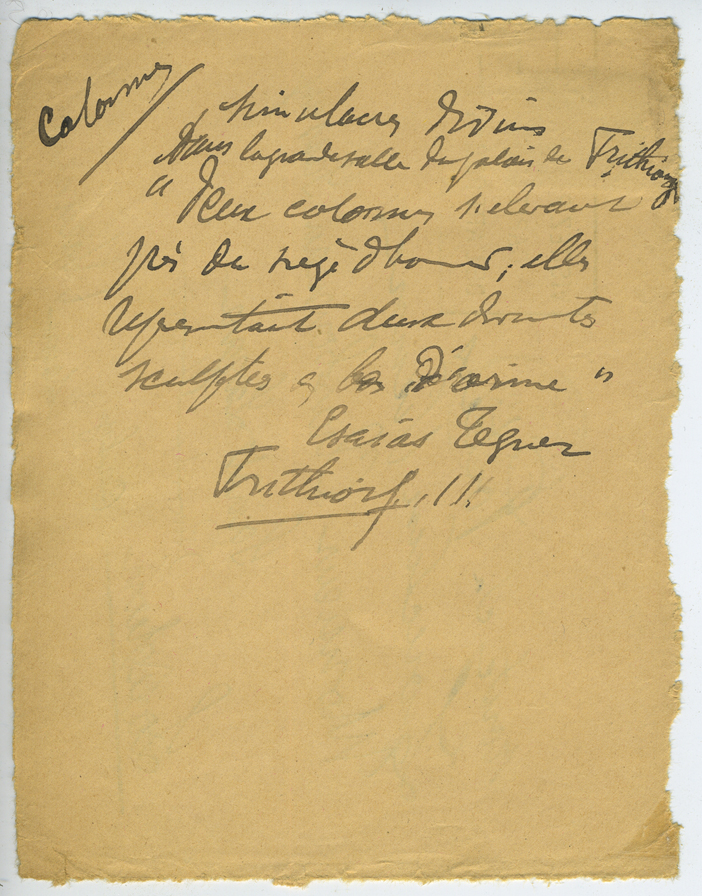 Colonnes
simulacres divins
Dans la grande salle du palais de Frithiorf
" Deux colonnes s'elevaient
près du siège d'honneur; elles
représentait deux
sculptés
Esaias Tegner
Frithiorf. III.